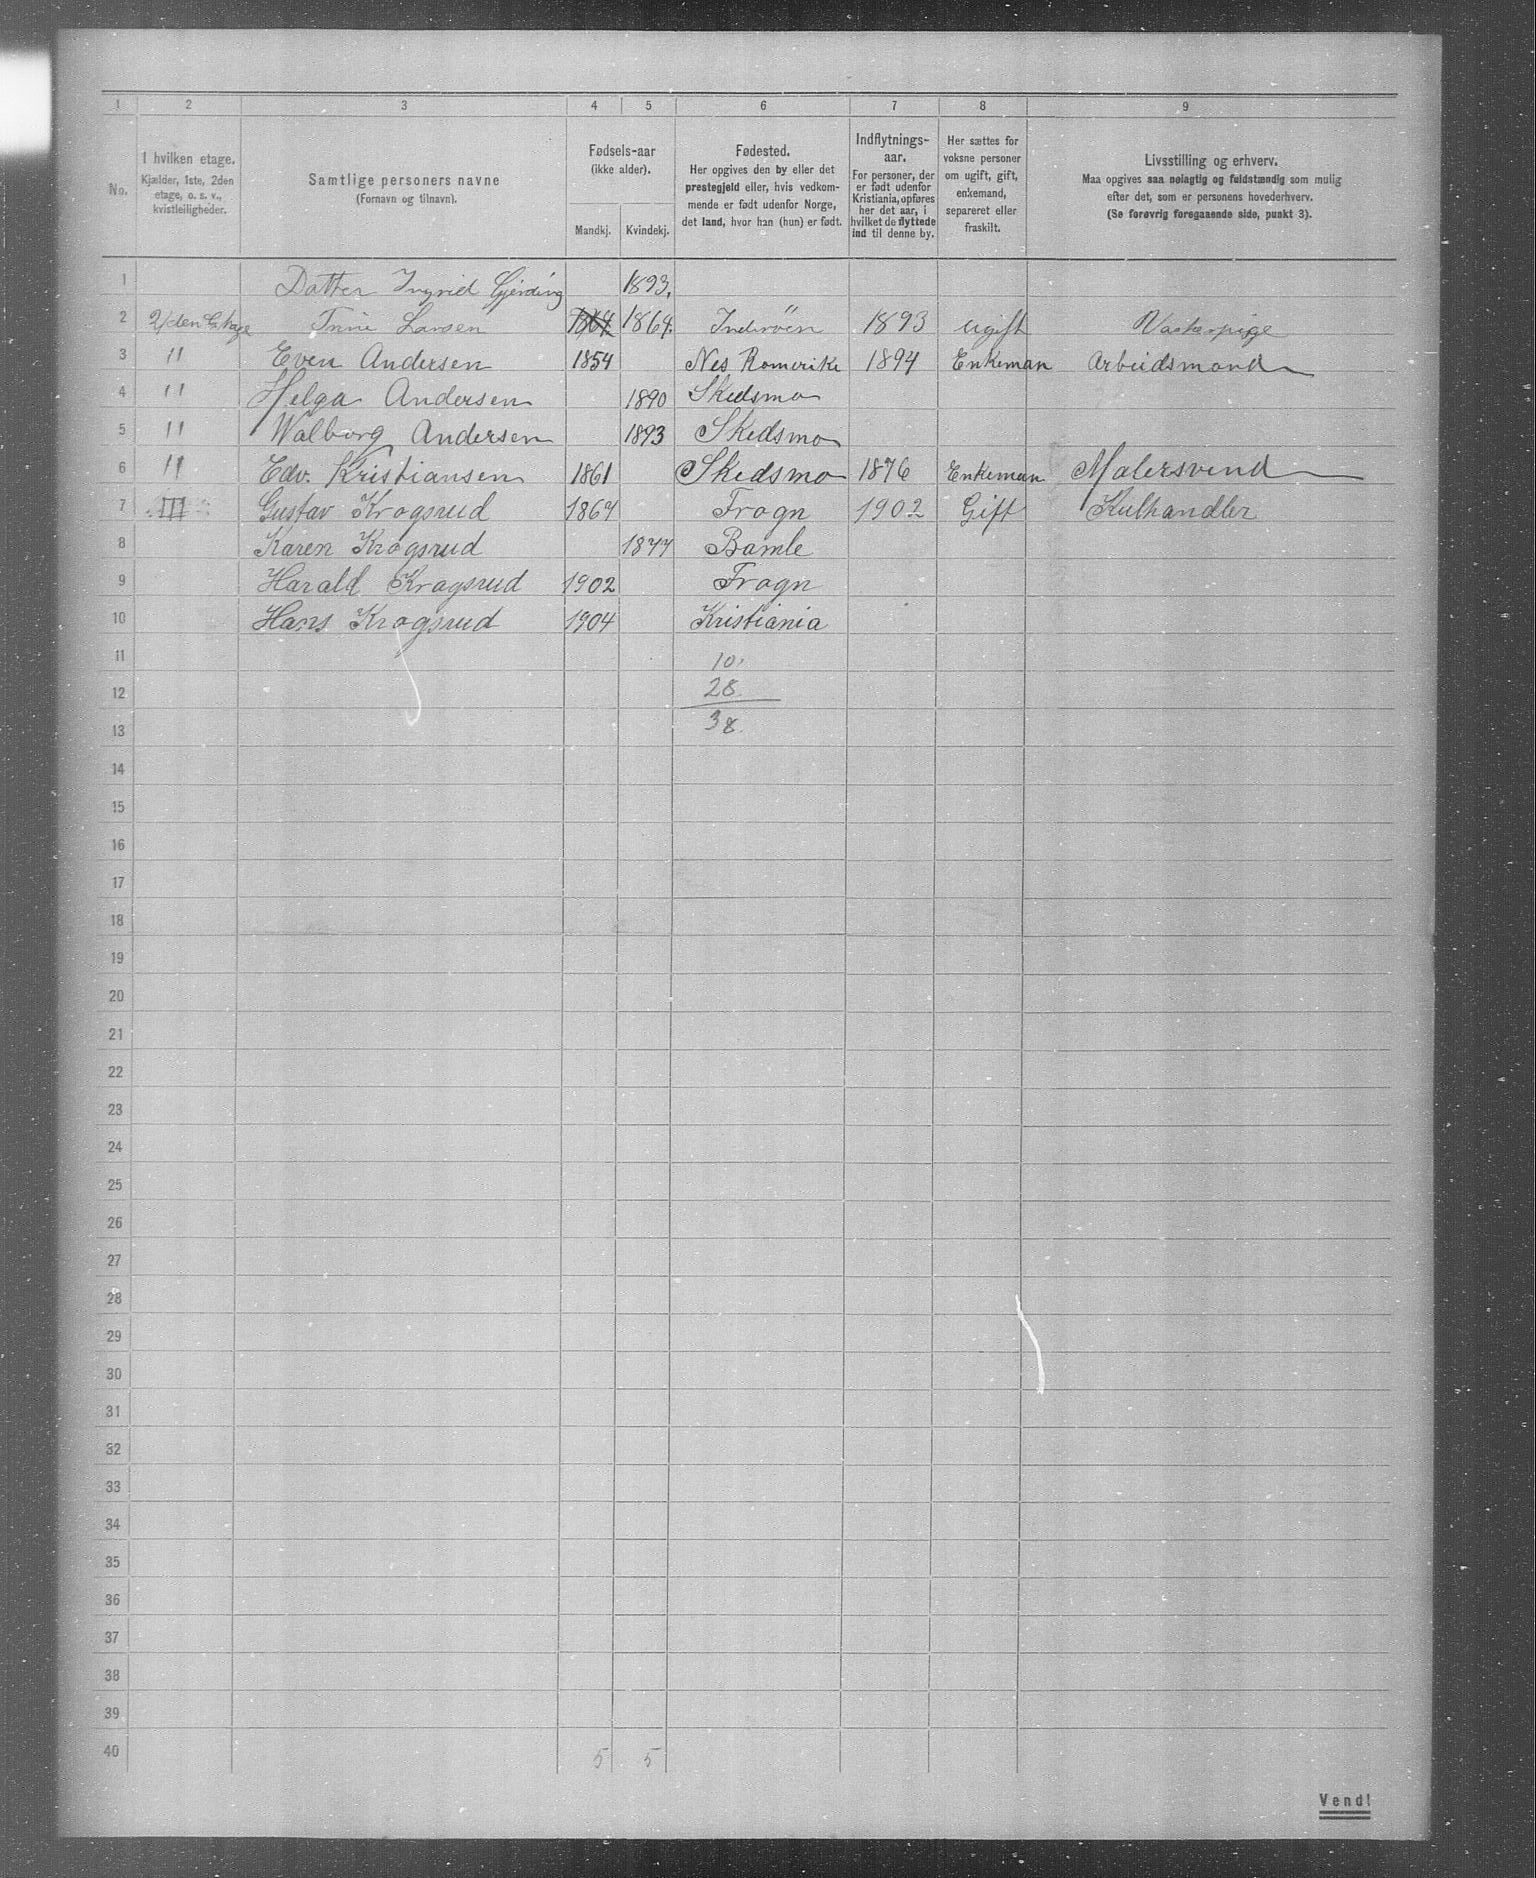 1 2 3 4 5 6 7 8 9
No.
I hvilken etage.
Kjælder, 1ste, 2den
etage, o. s. v.,
kvistleiligheder.
Samtlige personers navne
(Fornavn og tilnavn).
Fødsels-aar
(ikke alder).
Mandkj. Kvindekj.
Fødested.
Her opgives den by eller det
prestegjeld eller, hvis vedkom-
mende er født udenfor Norge,
det land, hvor han (hun) er født.
Indflytnings-
aar.
For personer, der
er født udenfor
Kristiania, opføres
her det aar, i
hvilket de flyttede
ind til denne by.
Her sættes for
voksne personer
om ugift, gift,
enkemand,
separeret eller
fraskilt.
Livsstilling og erhverv.
Maa opgives saa nøiagtig og fuldstændig som mulig
efter det, som er personens hovederhverv.
(Se forøvrig foregaaende side, punkt 3).
1 Datter Ingrid Gjerding 1893,
2 2/den Etage Trine Larsen 1864. 1864. Inderøen 1893 ugift Vaskerpige
3 " Even Andersen 1854 Nes Romerike 1894 Enkeman Arbeidsmand
4 " Helga Andersen 1890 Skedsmo
5 " Walborg Andersen 1893 Skedsmo
6 " Edv. Kristiansen 1861 Skedsmo 1876 Enkeman Malersvend
7 III Gustav Krogsrud 1864 Frogn 1902 Gift Kulhandler
8 Karen Krogsrud 1877 Bamle
9 Harald Krogsrud 1902 Frogn
10 Hans Krogsrud 1904 Kristiania
11 10,
12 28
13 38.
14
15
16
17
18
19
20
21
22
23
24
25
26
27
28
29
30
31
32
33
34
35
36
37
38
39
40 5 5
Vend!